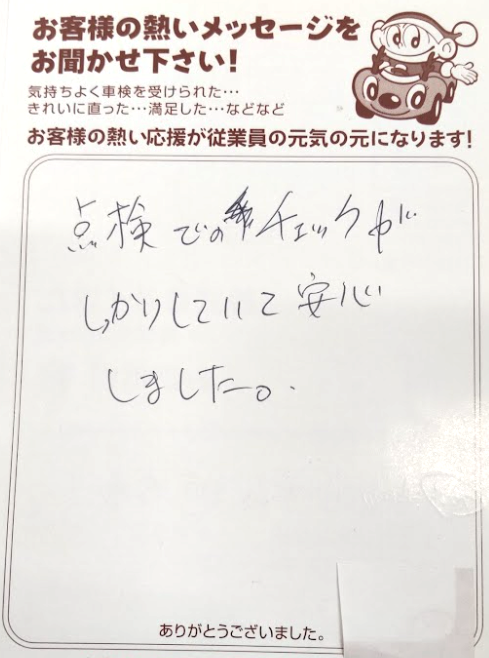 お客様の熱いメッセージを
お聞かせ下さい!
気持ちよく車検を受けられた…
きれいに直った…満足した…などなど
お客様の熱い応援が従業員の元気の元になります!
点検でのチェックが
しっかりしていて安心
しました。
ありがとうございました。